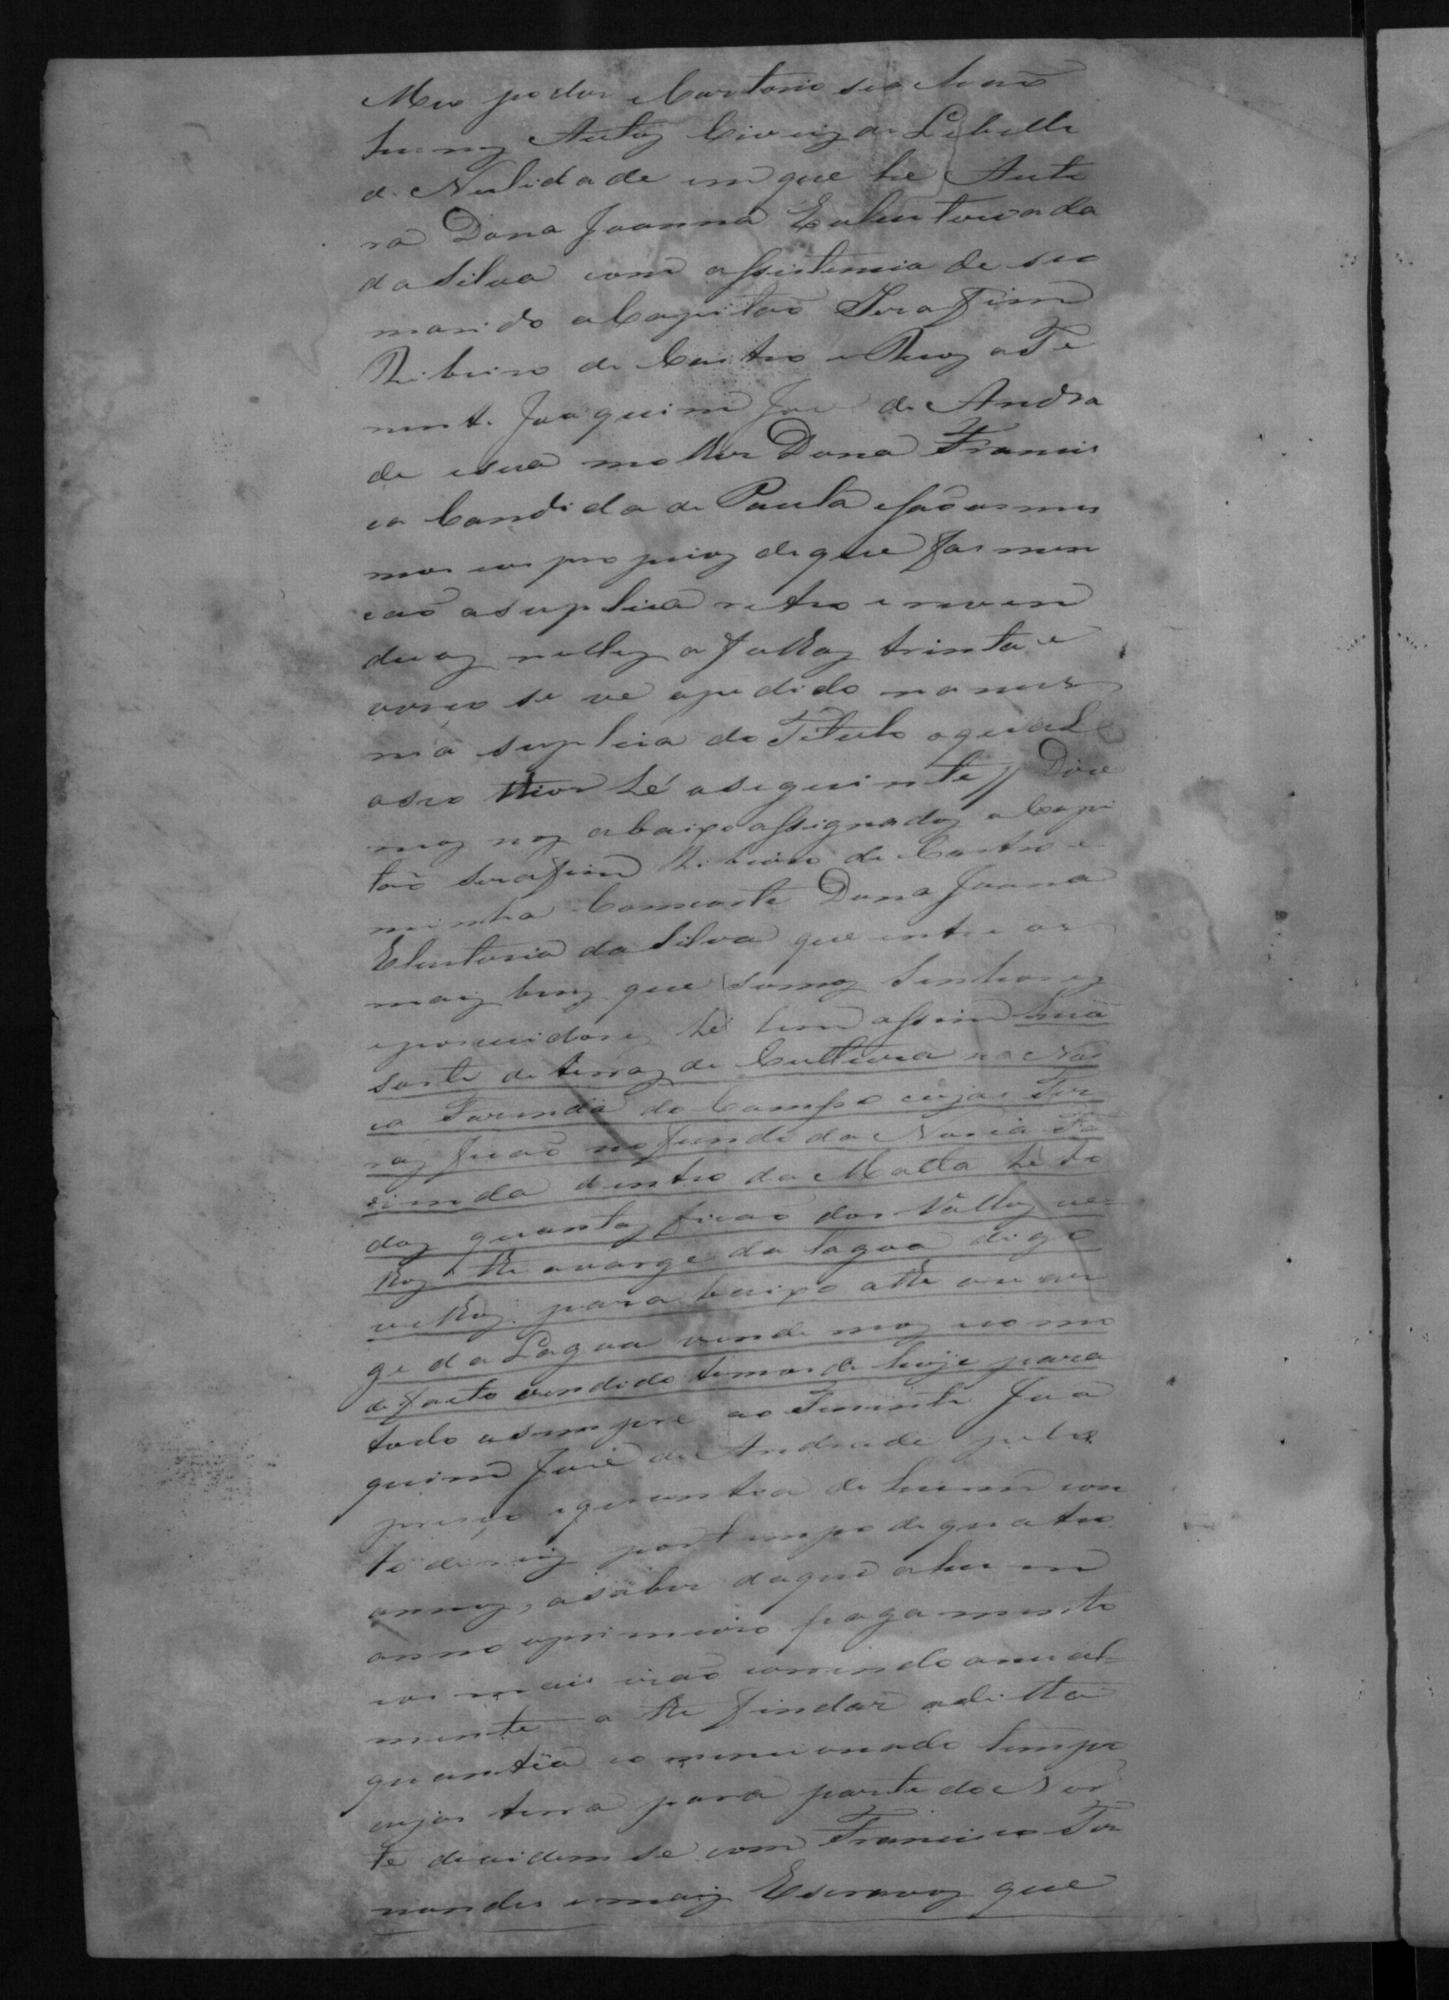 Meu poder e Cartorio se achaõ
huns Autos Civeis de Libello
de Nulidade em que he Auto
ra Dona Joanna Eleuteria da
da Silva com assistencia de seo
marido o Capitaõ Serafim
Ribeiro de Castro e Reos o Te
nente Joaquim Jose de Andra
de e sua molher Dona Francis
ca Candida de Paula e saõ os mes
mos e os proprios de que fas men
caõ a suplica retro e reven
do os nelles a folhas trinta e
se ve o pedido na mes
ma suplica do Titulo o qual
o seo thior hé o seguinte // Dize
mos nos abaixo assignados o Capi
taõ Serafim Ribeiro de Castro e
minha Comsorte Dona Joana
Eleuteria da Silva que entre os
mais bens que somos Senhores
e posuidores hé bem assim huã
sorte de terras de Cultura na Nos
ca Fazenda do Campo cujas Ter
ras ficaõ no fundo da Nossa Fa
zenda dentro da Matta hé to
das quantas ficaõ dos Vallos ve
lhos the a varge da lagoa digo
velhos para baixo athe a var
ge da Lagoa vendemos e como
de facto vendido temos de hoje para
todo o sempre ao Tenente Joa
quim José de Andrade pelo
preço e quantia de hum con
to de reis por tempo de quatro
annos, a saber daqui a hum
anno o primeiro pagamento
e os mais iraõ correndo anual
mente a the findar a ditta
quantia e o mencionado tempo
cujas terra para parte do Nor
te devidem se com Francisco Fer
nandes e mais Escravos que